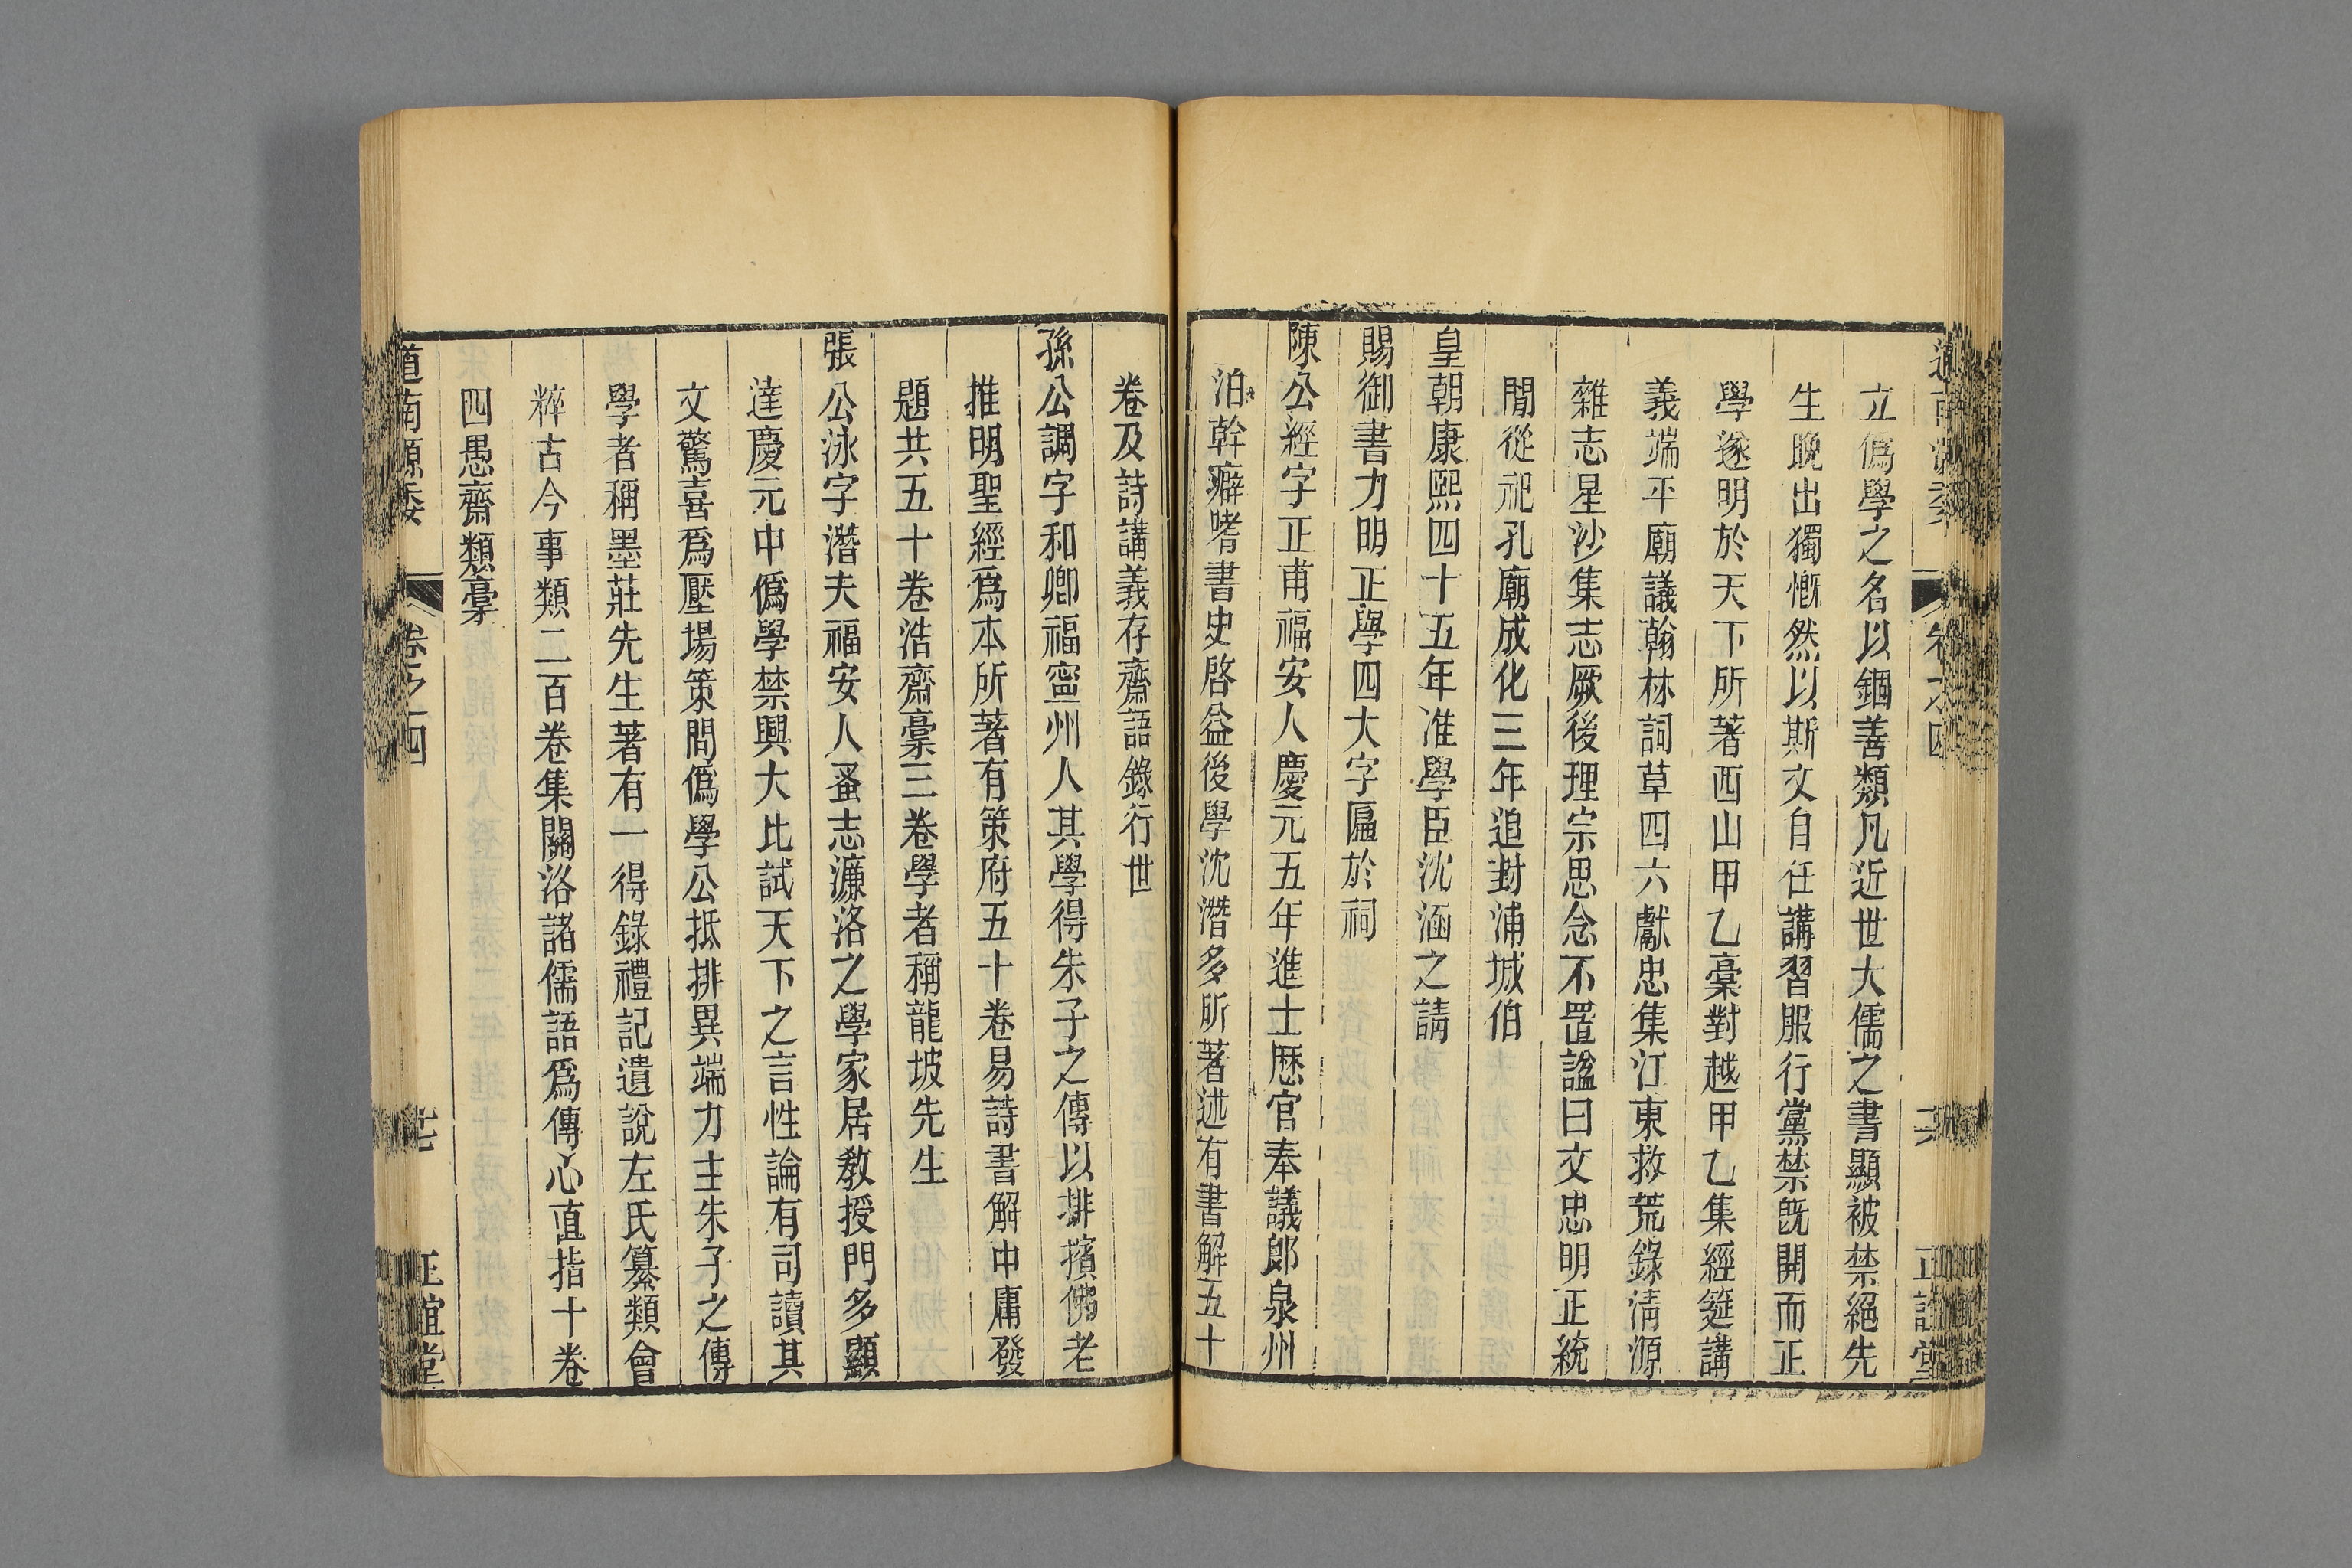 立僞學之名以錮善類凡近世大儒之書顯被禁絕先
生晚出獨慨然以斯文自任講習服行黨禁旣開而正
學遂明於天下所著西山甲乙稾對越甲乙集經筵講
義端平廟議翰林詞草四六獻忠集江東救荒錄淸源
雜志星沙集志厥後理宗思念不置諡曰文忠明正統
閒從祀孔廟成化三年追封浦城伯
皇朝康熙四十五年准學臣沈涵之請
賜御書力明正學四大字匾於祠
陳公經字正甫福安人慶元五年進士歷官奉議郎泉州
泊幹癖嗜書史啓益後學沈潛多所著述有書解五十
卷及詩講義存齋語錄行世
孫公調字和卿福寧州人其學得朱子之傳以排擯佛老
推明聖經爲本所著有策府五十卷易詩書解中庸發
題共五十卷浩齋稾三卷學者稱龍坡先生
張公泳字潛夫福安人蚤志濂洛之學家居敎授門多顯
達慶元中僞學禁興大比試天下之言性論有司讀其
文驚喜爲壓場策問僞學公抵排異端力主朱子之傳
學者稱墨莊先生著有一得錄禮記遺說左氏纂類會
粹古今事類二百卷集關洛諸儒語爲傳心直指十卷
四愚齋類稾
道南源委
卷之四
正誼堂